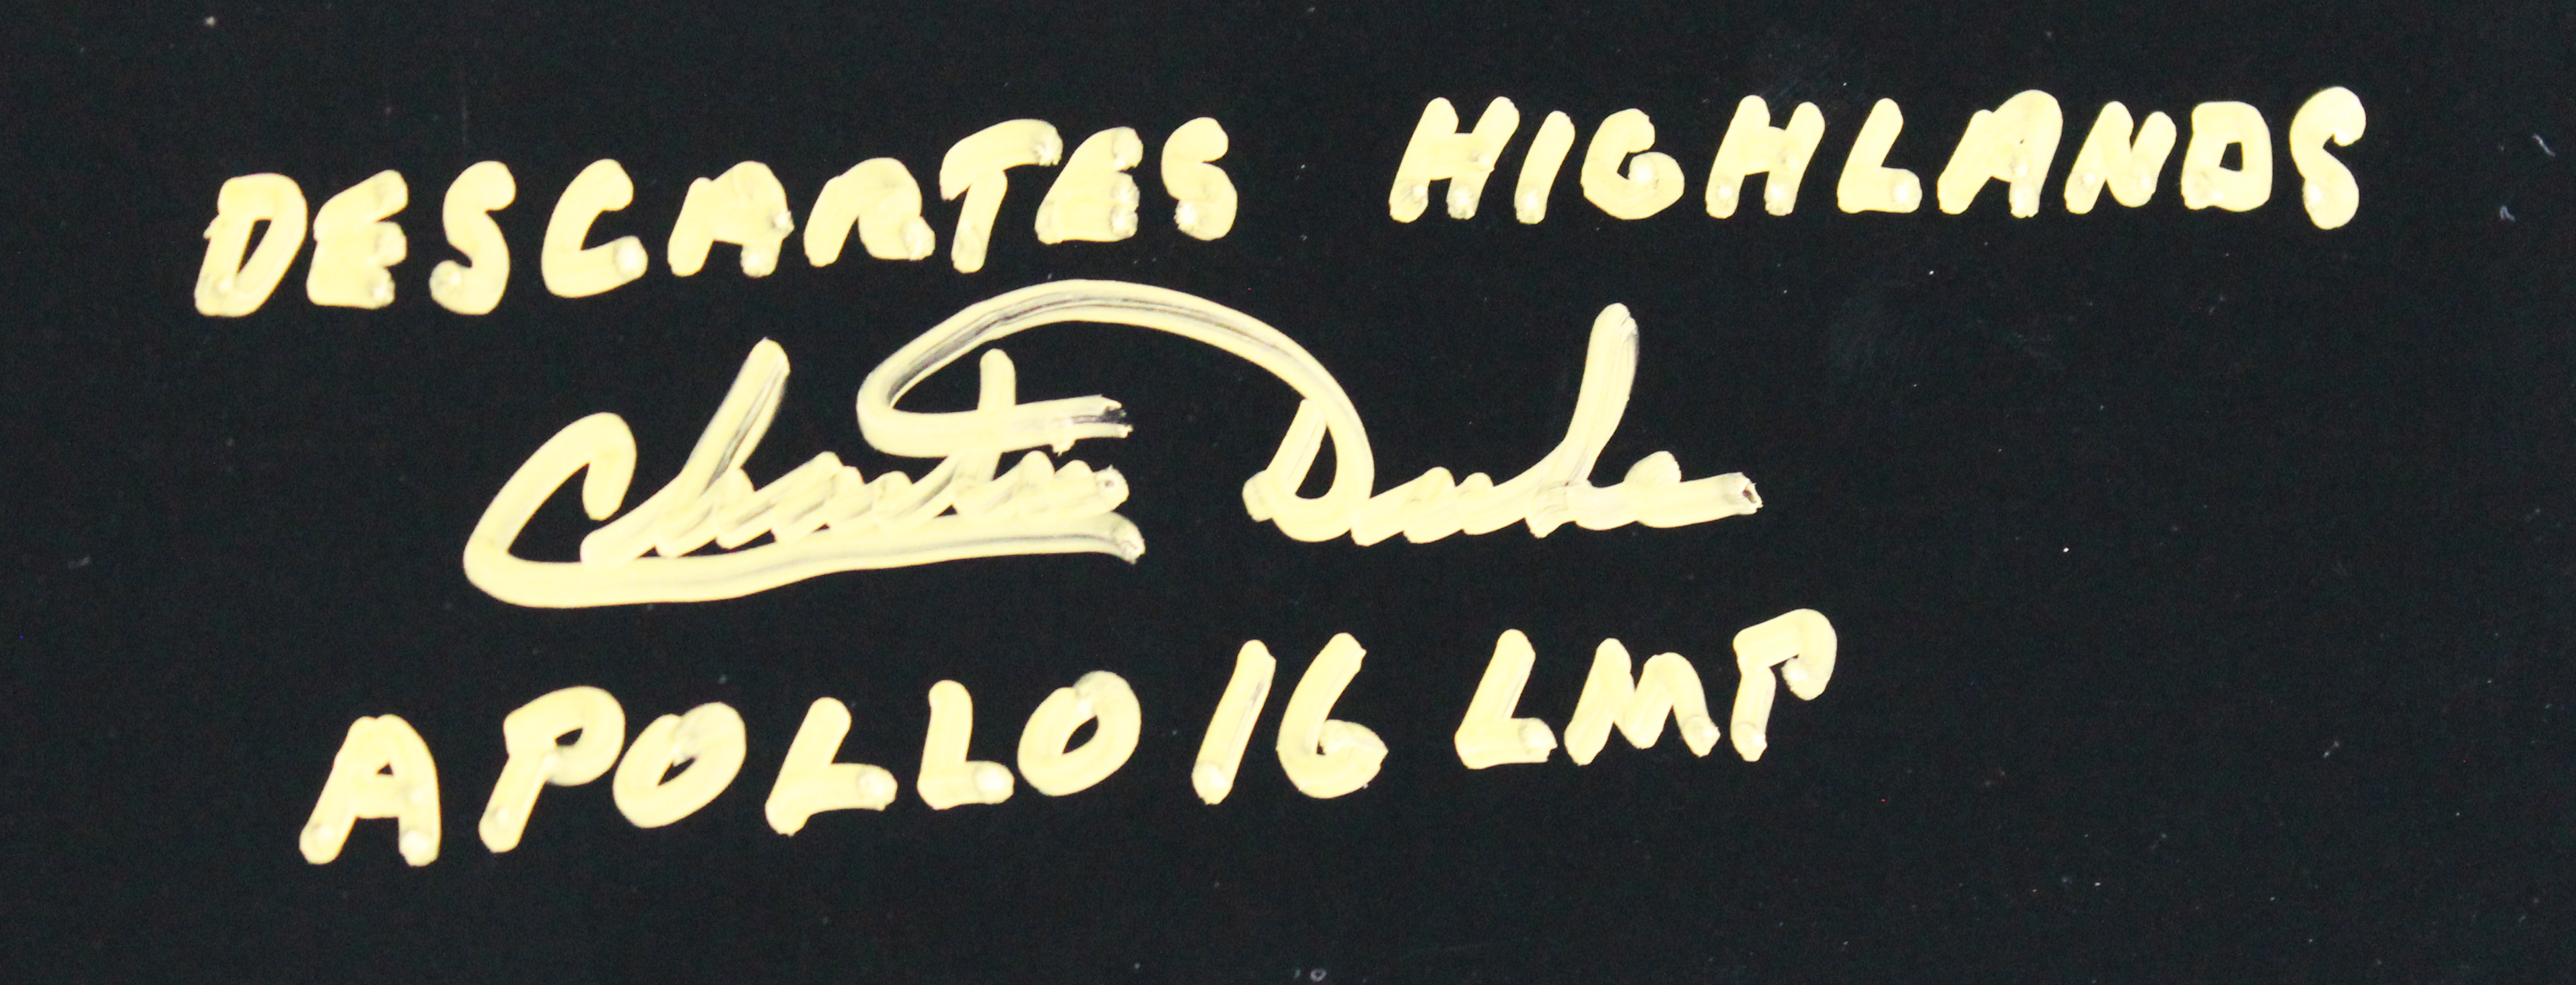 DESCARTES HIGHLANDS
Charlie Duke
APOLLO 16 LMP